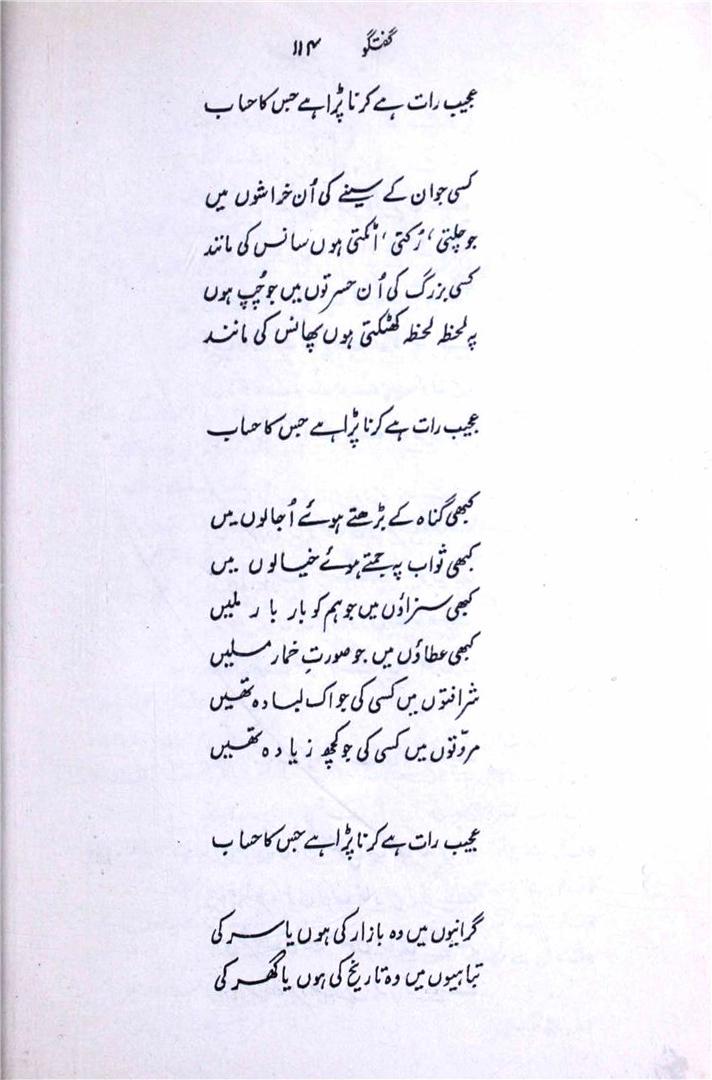 گفتگو ۱۱۴
عجیب رات ہے کرنا پڑا ہے جس کا حساب
کسی جوان کے سینے کی اُن خراشوں میں
جو چلتی ، رُکتی ، اٹکتی ہوں سانس کی مانند
کسی بزرگ کی اُن حسرتوں میں جو چُپ ہوں
پہ لحظہ لحظہ کھٹکتی ہوں پھانس کی مانند
عجیب رات ہے کرنا پڑا ہے جس کا حساب
کبھی گناہ کے بڑھتے ہوئے اُجالوں میں
کبھی ثواب پہ جمتے ہوئے خیالوں میں
کبھی سزاؤں میں جو ہم کو بار بار ملیں
کبھی عطاؤں میں جو صورتِ خمار ملیں
شرافتوں میں کسی کی جو اک لبادہ تھیں
مروّتوں میں کسی کی جو کچھ زیادہ تھیں
عجیب رات ہے کرنا پڑا ہے جس کا حساب
گرانیوں میں وہ بازار کی ہوں یا سر کی
تباہیوں میں وہ تاریخ کی ہوں یا گھر کی